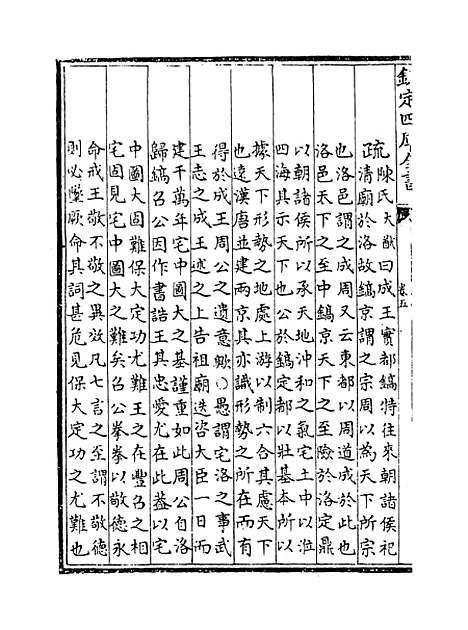 欽定四庫全書
卷五
疏陳氏大猷曰成王實都鎬特往來朝諸侯祀
清廟於洛故鎬京謂之宗周以為天下所宗
也洛邑謂之成周又云東都以周道成於此也
洛邑天下之中鎬京天下之至險於洛定鼎
以朝諸侯所以承天地沖和之氣宅土中以涖
四海其示天下也公於鎬定都以壯基本所以
據天下形勢之地處上游以制六合其慮天下
也遠漢唐並建兩京其亦識形勢之所在而有
得於成王周公之遺意歟○愚謂宅洛之事武
王志之成王述之上告祖廟迭咨大臣一日而
建千萬年宅中圖大之基謹重如此周公自洛
歸鎬召公因作書誥王其忠愛尤在此蓋以宅
中圖大固難保大定功尤難王之在豐召之相
宅固見宅中圖大之難矣召公拳拳以敬德永
命戒王敬不敬之異效凡七言之至謂不敬德
則必墜厥命其詞甚危見保大定功之尤難也